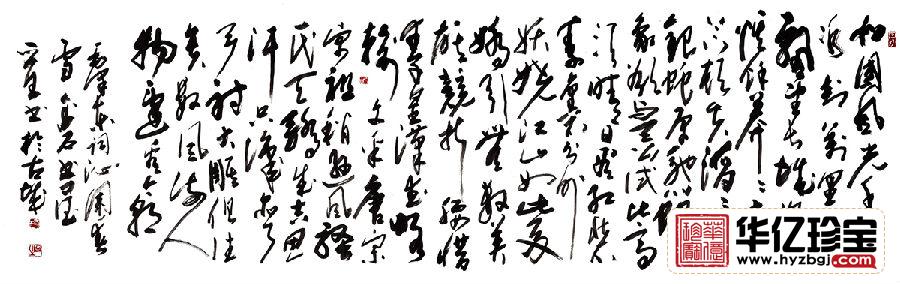 北国风光千
里冰封万里
雪飘望长城内
外惟馀莽莽
下顿失滔滔
银蛇原驰蜡
象欲与天公试比高
须晴日看红装
素裹分外
妖娆江山如此多
娇引无数英
雄竞折腰惜
秦皇汉武略
输文采唐宗
宋祖稍逊风骚
天骄成吉思
汗只识弯弓
射大雕俱往
矣数风流人
物还看今朝
毛泽东词沁园春
雪
书于古城
华亿珍宝
www.hyzbgj.com